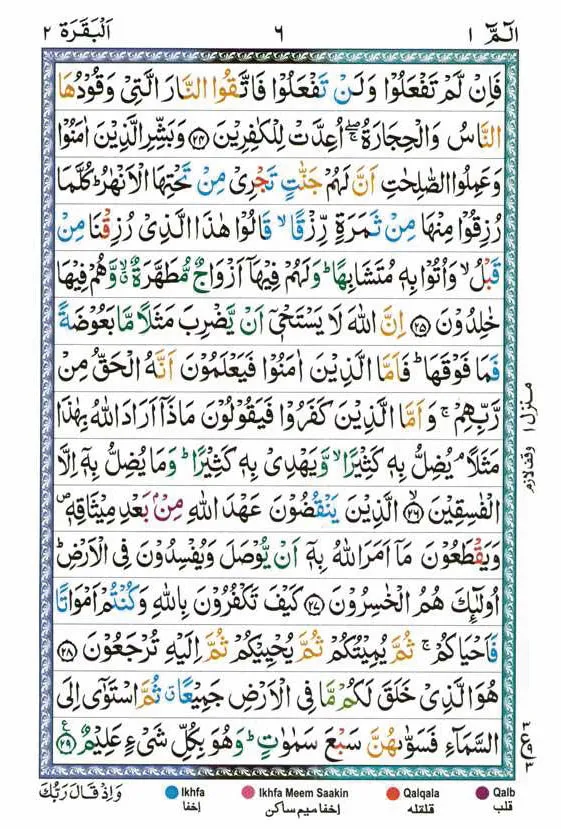 الٓمّٓ ١
٦
اَلْبَقَرَة ٢
فَاِنْ لَّمْ تَفْعَلُوْا وَلَنْ تَفْعَلُوْا فَاتَّقُوا النَّارَ الَّتِىْ وَقُوْدُهَا
النَّاسُ وَالْحِجَارَةُ ۖۚ اُعِدَّتْ لِلْكٰفِرِيْنَ ﴿۲۴﴾ وَبَشِّرِ الَّذِيْنَ اٰمَنُوْا
وَعَمِلُوا الصّٰلِحٰتِ اَنَّ لَهُمْ جَنّٰتٍ تَجْرِىْ مِنْ تَحْتِهَا الْاَنْهٰرُ ؕ كُلَّمَا
رُزِقُوْا مِنْهَا مِنْ ثَمَرَةٍ رِّزْقًا ۙ قَالُوْا هٰذَا الَّذِىْ رُزِقْنَا مِنْ
قَبْلُ ۙ وَاُتُوْا بِهٖ مُتَشَابِهًا ؕ وَلَهُمْ فِيْهَآ اَزْوَاجٌ مُّطَهَّرَةٌ ۙ وَّهُمْ فِيْهَا
خٰلِدُوْنَ ﴿۲۵﴾ اِنَّ اللّٰهَ لَا يَسْتَحْىٖٓ اَنْ يَّضْرِبَ مَثَلًا مَّا بَعُوْضَةً
فَمَا فَوْقَهَا ؕ فَاَمَّا الَّذِيْنَ اٰمَنُوْا فَيَعْلَمُوْنَ اَنَّهُ الْحَقُّ مِنْ
رَّبِّهِمْ ۚ وَاَمَّا الَّذِيْنَ كَفَرُوْا فَيَقُوْلُوْنَ مَاذَآ اَرَادَ اللّٰهُ بِهٰذَا
مَثَلًا ۘ يُضِلُّ بِهٖ كَثِيْرًا ۙ وَّيَهْدِىْ بِهٖ كَثِيْرًا ؕ وَمَا يُضِلُّ بِهٖٓ اِلَّا
الْفٰسِقِيْنَ ﴿۲۶﴾ الَّذِيْنَ يَنْقُضُوْنَ عَهْدَ اللّٰهِ مِنْۢ بَعْدِ مِيْثَاقِهٖ ۪
وَيَقْطَعُوْنَ مَآ اَمَرَ اللّٰهُ بِهٖٓ اَنْ يُّوْصَلَ وَيُفْسِدُوْنَ فِى الْاَرْضِ ؕ
اُولٰٓئِكَ هُمُ الْخٰسِرُوْنَ ﴿۲۷﴾ كَيْفَ تَكْفُرُوْنَ بِاللّٰهِ وَكُنْتُمْ اَمْوَاتًا
فَاَحْيَاكُمْ ۚ ثُمَّ يُمِيْتُكُمْ ثُمَّ يُحْيِيْكُمْ ثُمَّ اِلَيْهِ تُرْجَعُوْنَ ﴿۲۸﴾
هُوَ الَّذِىْ خَلَقَ لَكُمْ مَّا فِى الْاَرْضِ جَمِيْعًا ۗ ثُمَّ اسْتَوٰٓى اِلَى
السَّمَآءِ فَسَوّٰىهُنَّ سَبْعَ سَمٰوٰتٍ ؕ وَهُوَ بِكُلِّ شَىْءٍ عَلِيْمٌ ﴿۲۹﴾
منزل ١
وقف لازم
ع
وَاِذْ قَالَ رَبُّكَ
Ikhfa
إخفا
Ikhfa Meem Saakin
إخفا میم ساکن
Qalqala
قلقله
Qalb
قلب